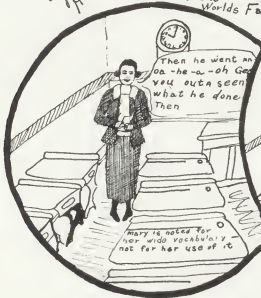 Worlds Fa
Then he went an
oa-he-a-oh Ge
you outa seen
what he done
Then
Mary is noted for
her wide vocabulary —
not for her use of it